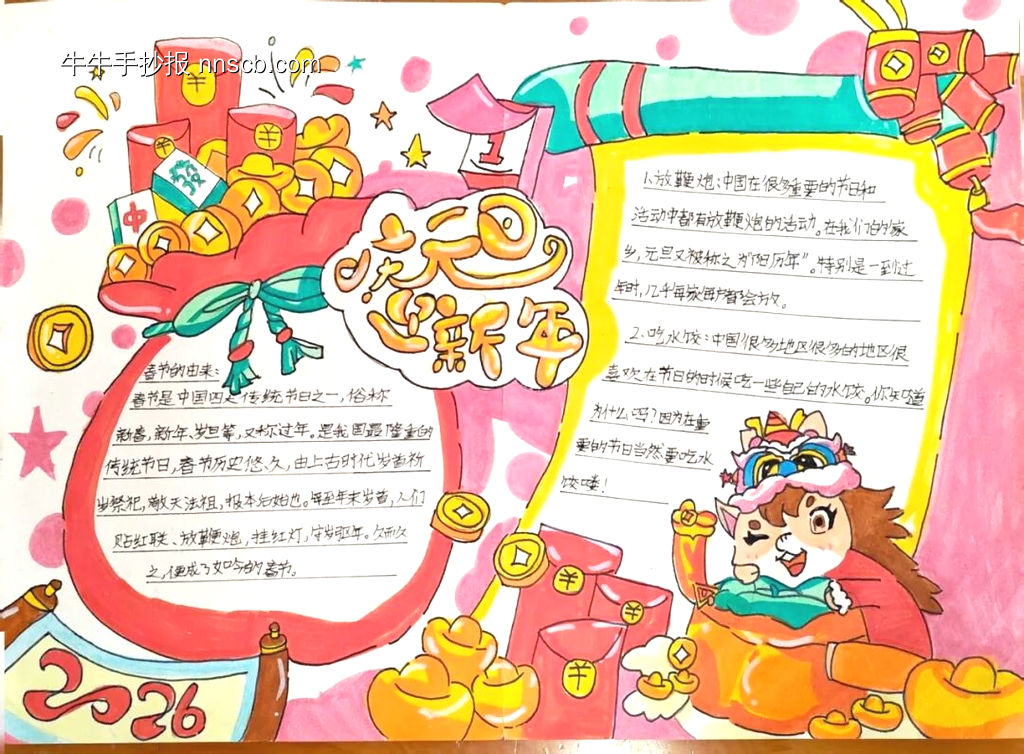 牛牛手抄报 nnscbl.com
1
發
中
庆元旦
迎新年
春节的由来:
春节是中国四大传统节日之一,俗称
新春,新年、岁旦等,又称过年。是我国最隆重的
传统节日,春节历史悠久,由上古时代岁首祈
岁祭祀,敬天法祖,报本
每至年末岁首,人们
贴红联、放鞭炮,挂红灯,守岁
久而久
之,便成了如今的春节。
1.放鞭炮:中国在很多重要的节日和
活动中都有放鞭炮的活动。在我们的家
乡,元旦又被称之为"阳历年"。特别是一到过
年时,几乎每家每户都会放。
2.吃水饺:中国很多地区很多的地区很
喜欢在节日的时候吃一些自己包的水饺。你知道
为什么吗?因为在重
要的节日当然要吃水
饺喽!
2026